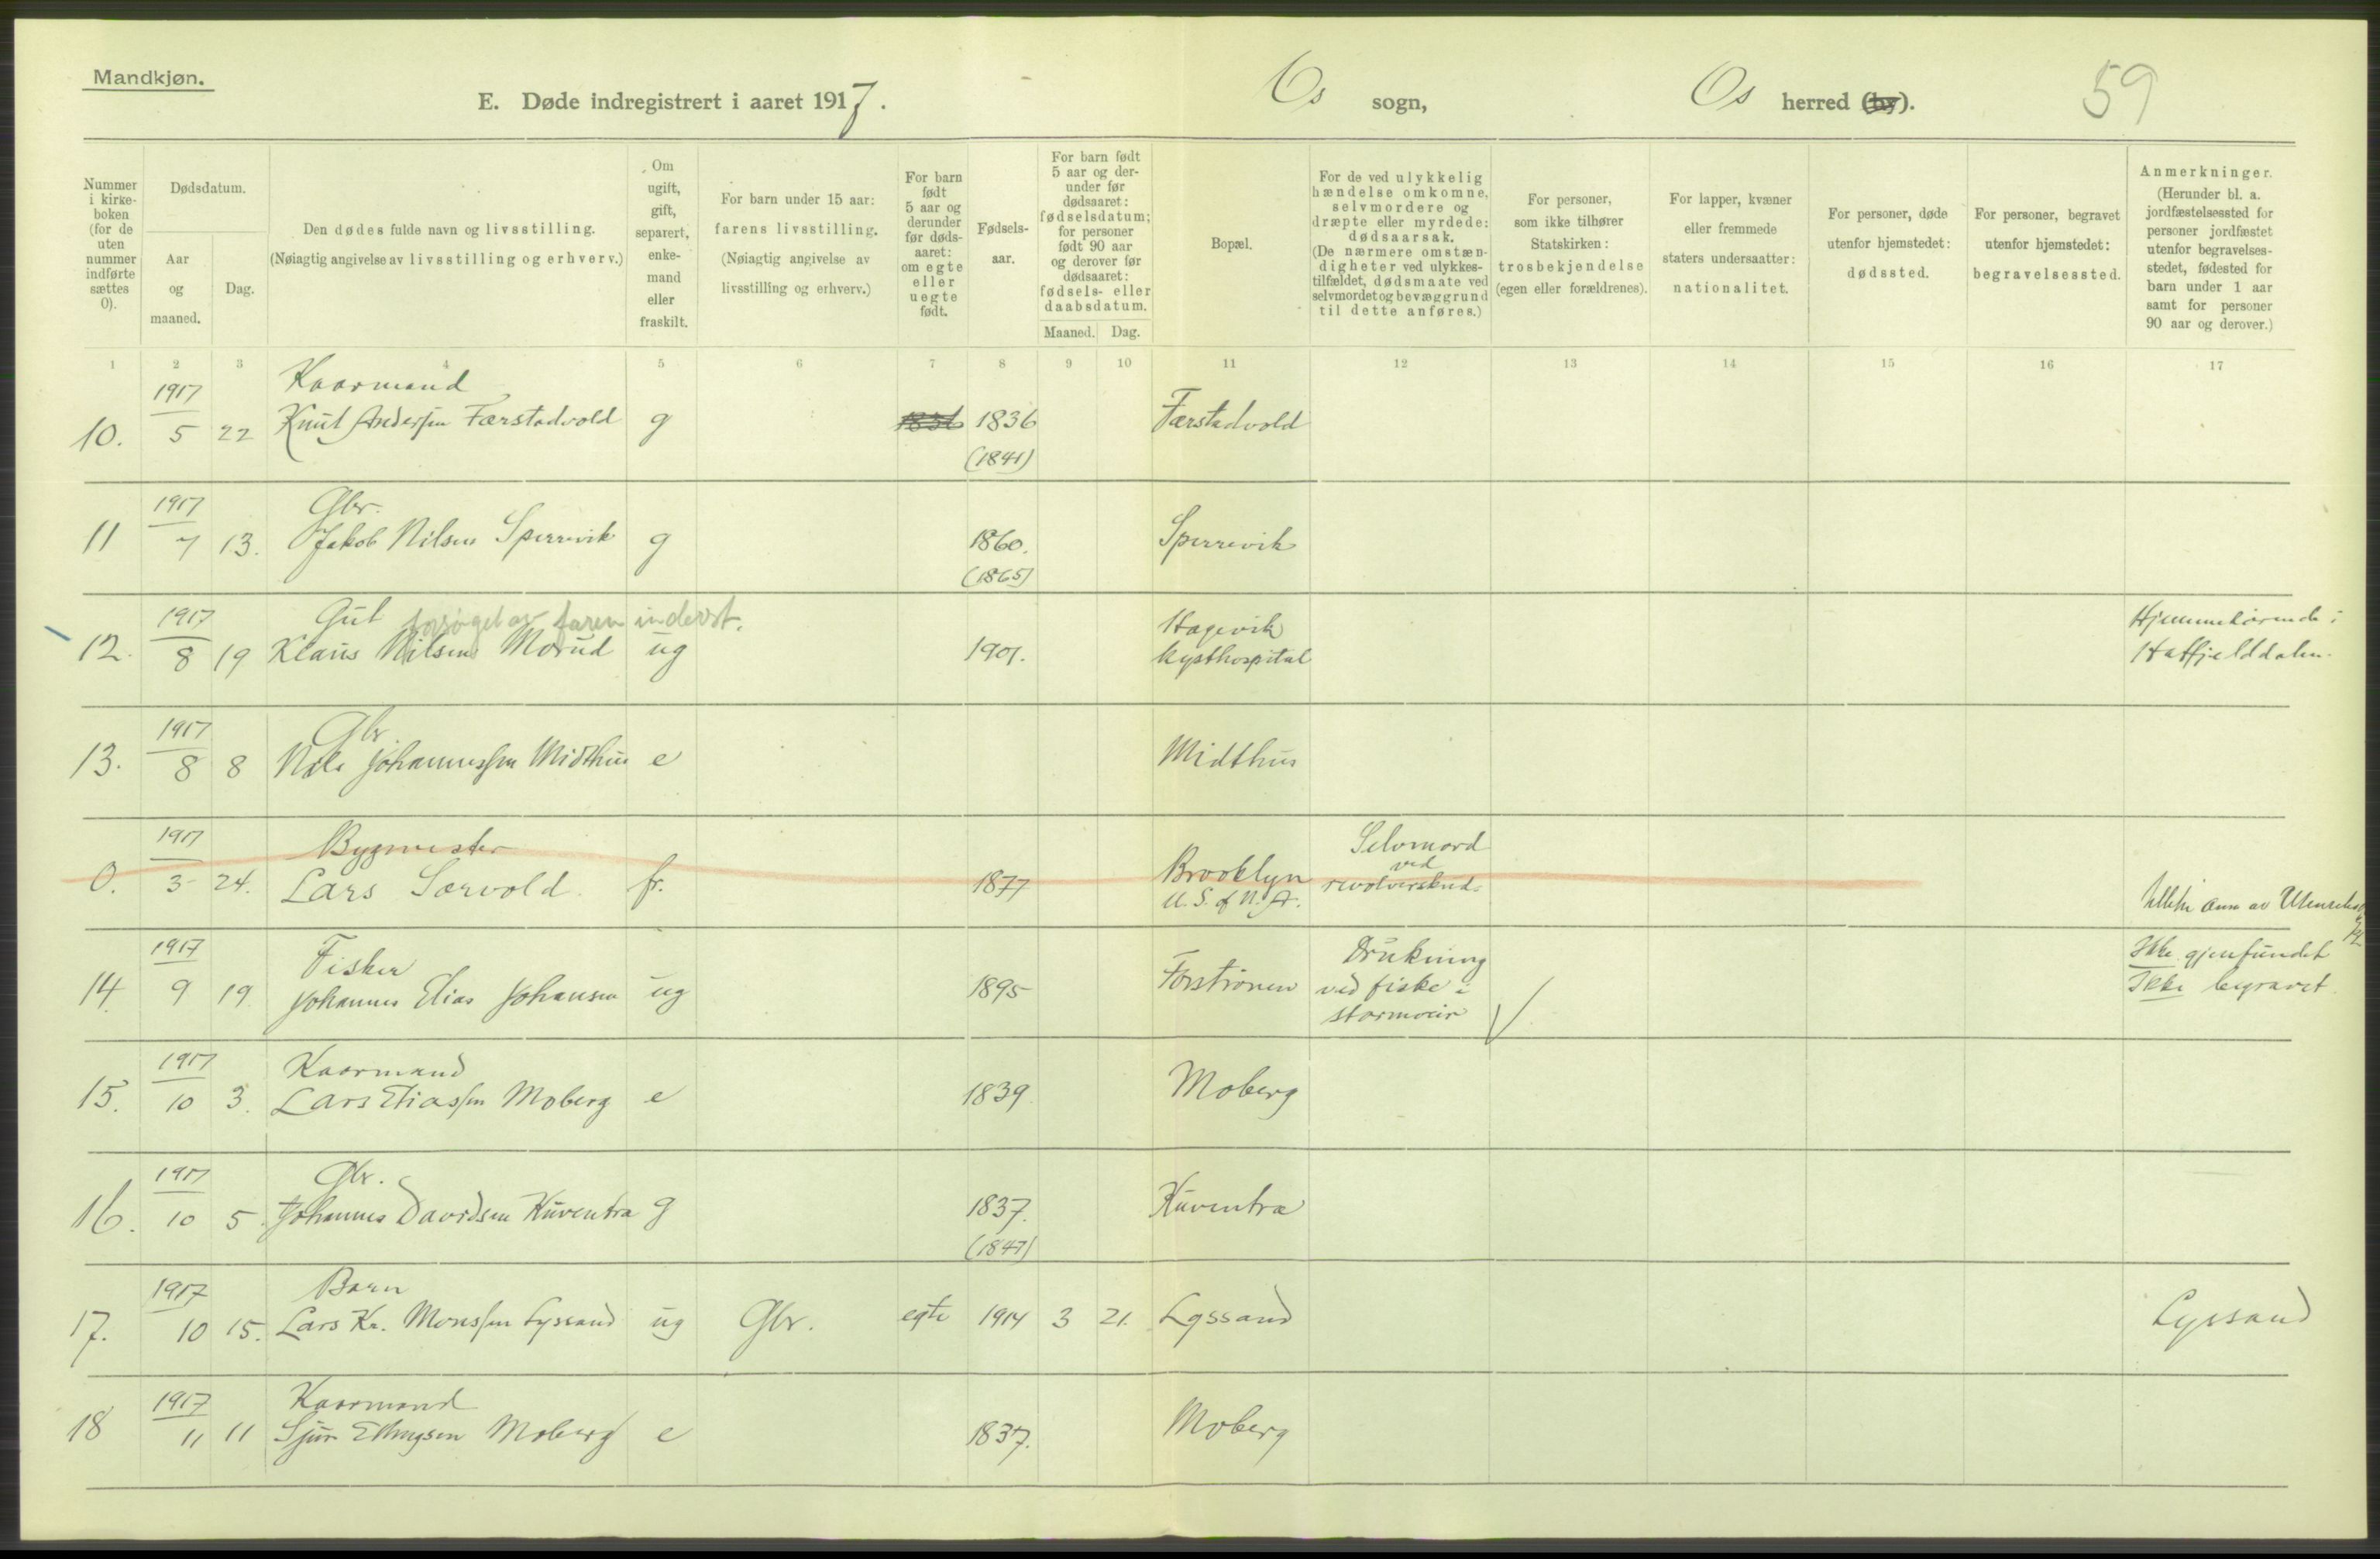 Mandkjøn.
E. Døde indregistrert i aaret 1917. Os sogn, Os herred (by). 59
Nummer i kirke-boken (for de uten nummer indførte sættes 0).
Dødsdatum.
Aar og maaned.
Dag.
Den dødes fulde navn og livsstilling.
(Nøiagtig angivelse av livsstilling og erhverv.)
Om ugift, gift, separert, enke-mand eller fraskilt.
For barn under 15 aar:
farens livsstilling.
(Nøiagtig angivelse av livsstilling og erhverv.)
For barn født 5 aar og derunder før døds-aaret: om egte eller uegte født.
Fødsels-aar.
For barn født 5 aar og der-under før dødsaaret: fødselsdatum; for personer født 90 aar og derover før dødsaaret: fødsels- eller daabsdatum.
Maaned. Dag.
Bopæl.
For de ved ulykkelig hændelse omkomne, selvmordere og dræpte eller myrdede: dødsaarsak.
(De nærmere omstæn-digheter ved ulykkes-tilfældet, dødsmaate ved selvmordet og bevæggrund til dette anføres.)
For personer, som ikke tilhører Statskirken: trosbekjendelse (egen eller forældrenes).
For lapper, kvæner eller fremmede staters undersaatter: nationalitet.
For personer, døde utenfor hjemstedet: dødssted.
For personer, begravet utenfor hjemstedet: begravelsessted.
Anmerkninger.
(Herunder bl. a. jordfæstelsessted for personer jordfæstet utenfor begravelses-stedet, fødested for barn under 1 aar samt for personer 90 aar og derover.)
1 2 3 4 5 6 7 8 9 10 11 12 13 14 15 16 17
1917 Kaarmand
10. 5 22 Knut Anderssen Færstadvold g 1836 1836 Færstadvold
(1841)
1917 Gbr.
11 7 13. Jakob Nilsen Sperrevik g 1860. Sperrevik
(1865)
1917 Gut forsørget av faren inderst. Hagevik Hjemmehørende i
12. 8 19 Klaus Nilsen Mørud ug 1901. kysthospital Hatfjelddalen.
1917 Gbr.
13. 8 8 Nils Johannessen Midthus e Midthus
1917 Bygmester Selvmord
0. 3 24. Lars Sørvold. fr. 1877 Brooklyn ved revolverskud.
U. S. of N. A.
av
1917 Fisker Drukning Ikke gjenfundet
14. 9 19. Johannes Elias Johansen ug 1895 Forstrønen ved fiske i Ikke begravet.
stormveir
1917 Kaarmand
15. 10 3. Lars Eliassen Moberg e 1839 Moberg
1917 Gbr.
16. 10 5. Johannes Davidsen Kuventræ g 1837. Kuventræ
(1847)
1917 Barn
17. 10 15. Lars Kr. Monssen Lyssand ug Gbr. egte 1914 3 21. Lyssand Lyssand
1917 Kaarmand
18 11 11 Sjur Ellingsen Moberg e 1837. Moberg